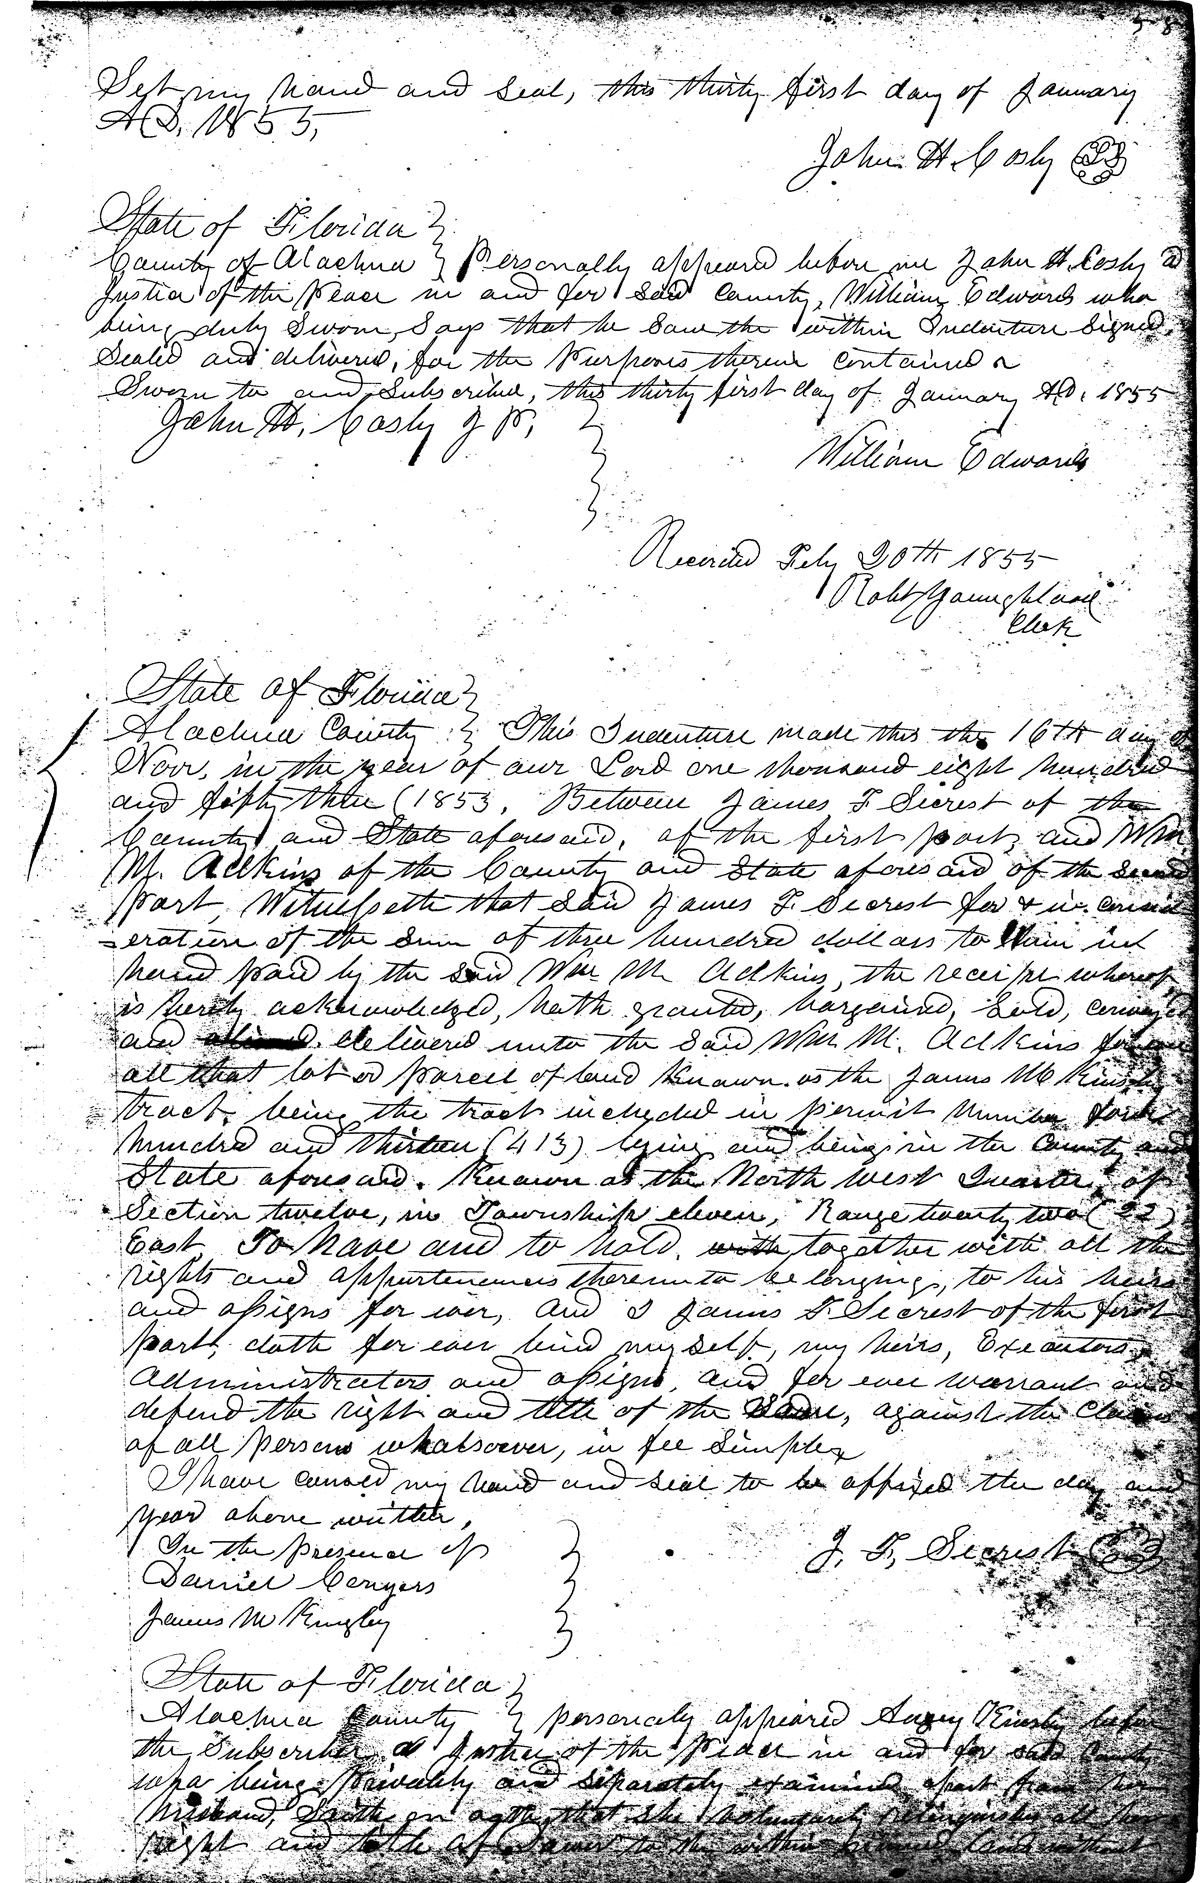 Set my hand and seal, this thirty first day of January
A.D. 1855,
John H. Cosby LS
State of Florida
County of Alachua } Personally appeared before me John H. Cosby a
Justice of the Peace in and for said County, William Edwards who
being duly Sworn, Says that he Saw the within Indenture Signed,
Sealed and delivered, for the Purposes therein contained
Sworn to and Subscribed, this thirty first day of January AD. 1855
John H. Cosby J P,
William Edwards
Recorded Feby 20th 1855
Robt Youngblood
Clerk
State of Florida
Alachua County } This Indenture made this the 16th day of
Novr. in the year of our Lord one thousand eight hundred
and fifty three (1853, Between James F Secrest of the
County and State aforesaid, of the first part, and Wm
M. Adkins of the County and State aforesaid of the second
part, Witnesseth that Said James F. Secrest for & in consid
=eration of the Sum of three hundred dollars to him in
hand paid by the said Wm M. Adkins, the receipt whereof
is hereby acknowledged, hath granted, bargained, Sold, conveyed
and delivered unto the Said Wm M. Adkins
all that lot or parcel of land Known as the James M Kinsley
tract, being the tract included in permit Number four
hundred and thirteen (413) lying and being in the County and
State aforesaid. Known as the North West Quarter of
Section twelve, in Township eleven, Range twenty two (22)
East, To have and to hold, with together with all the
rights and appurtenances thereunto belonging, to his heirs
and assigns for ever, and I James F. Secrest of the first
part, doth for ever bind myself, my heirs, Executors,
Administrators and assigns, and for ever warrant and
defend the right and title of the Same, against the Claims
of all persons whatsoever, in fee Simple
I have caused my hand and seal to be affixed the day and
year above written,
In the presence of
J. F. Secrest
Daniel Conyers
James M Kingley
State of Florida
Alachua County } personally appeared before
the Subscriber a Justice of the Peace in and for said County
who being privately and separately examined apart from her
husband, Saith on oath that she voluntarily relinquishes all her
right and title of Dower to the within land without